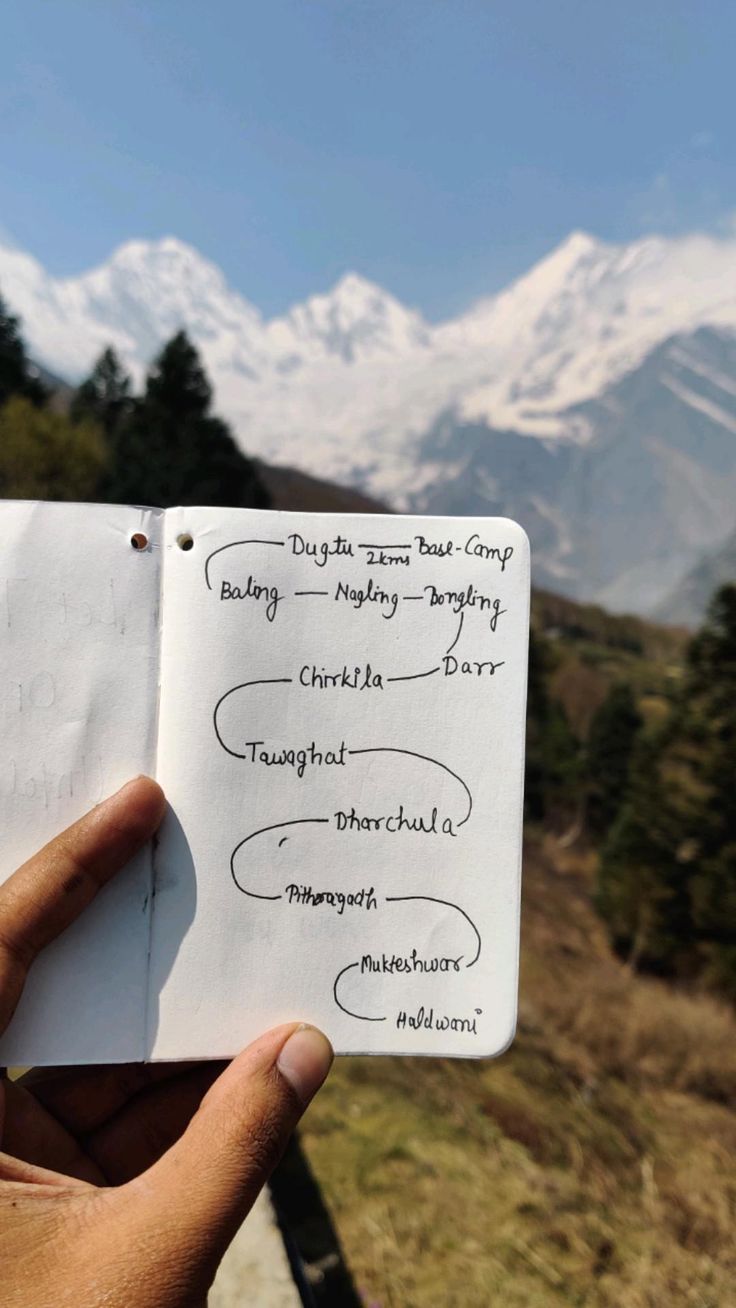 Dugtu — Base-Camp
2kms
Baling — Nagling — Bongling
Darr
Chirkila
Tawaghat
Dharchula
Pithoragadh
Mukteshwar
Haldwani